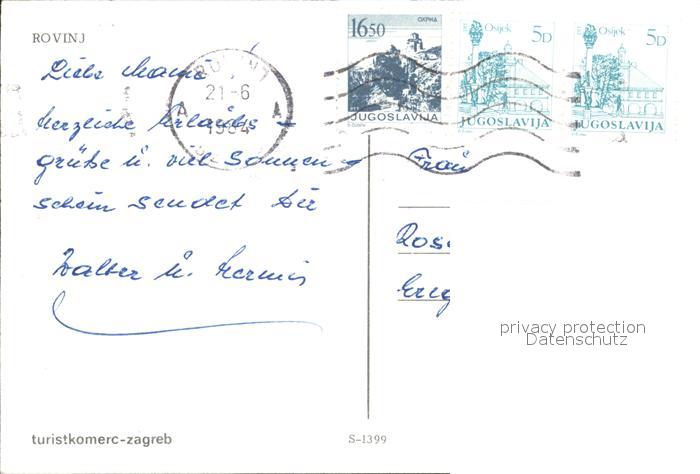 ROVINJ
Liebe Mama !
herzliche Urlaubs -
grüße u. viel Sonnen -
schein sendet Dir
Walter u. Hermi
ROVINJ
21-6
1984
A A
1650
ОХРИД
JUGOSLAVIJA
Osijek 5D
JUGOSLAVIJA
Osijek 5D
JUGOSLAVIJA
Frau
Ros
privacy protection
Datenschutz
turistkomerc-zagreb
S-1399